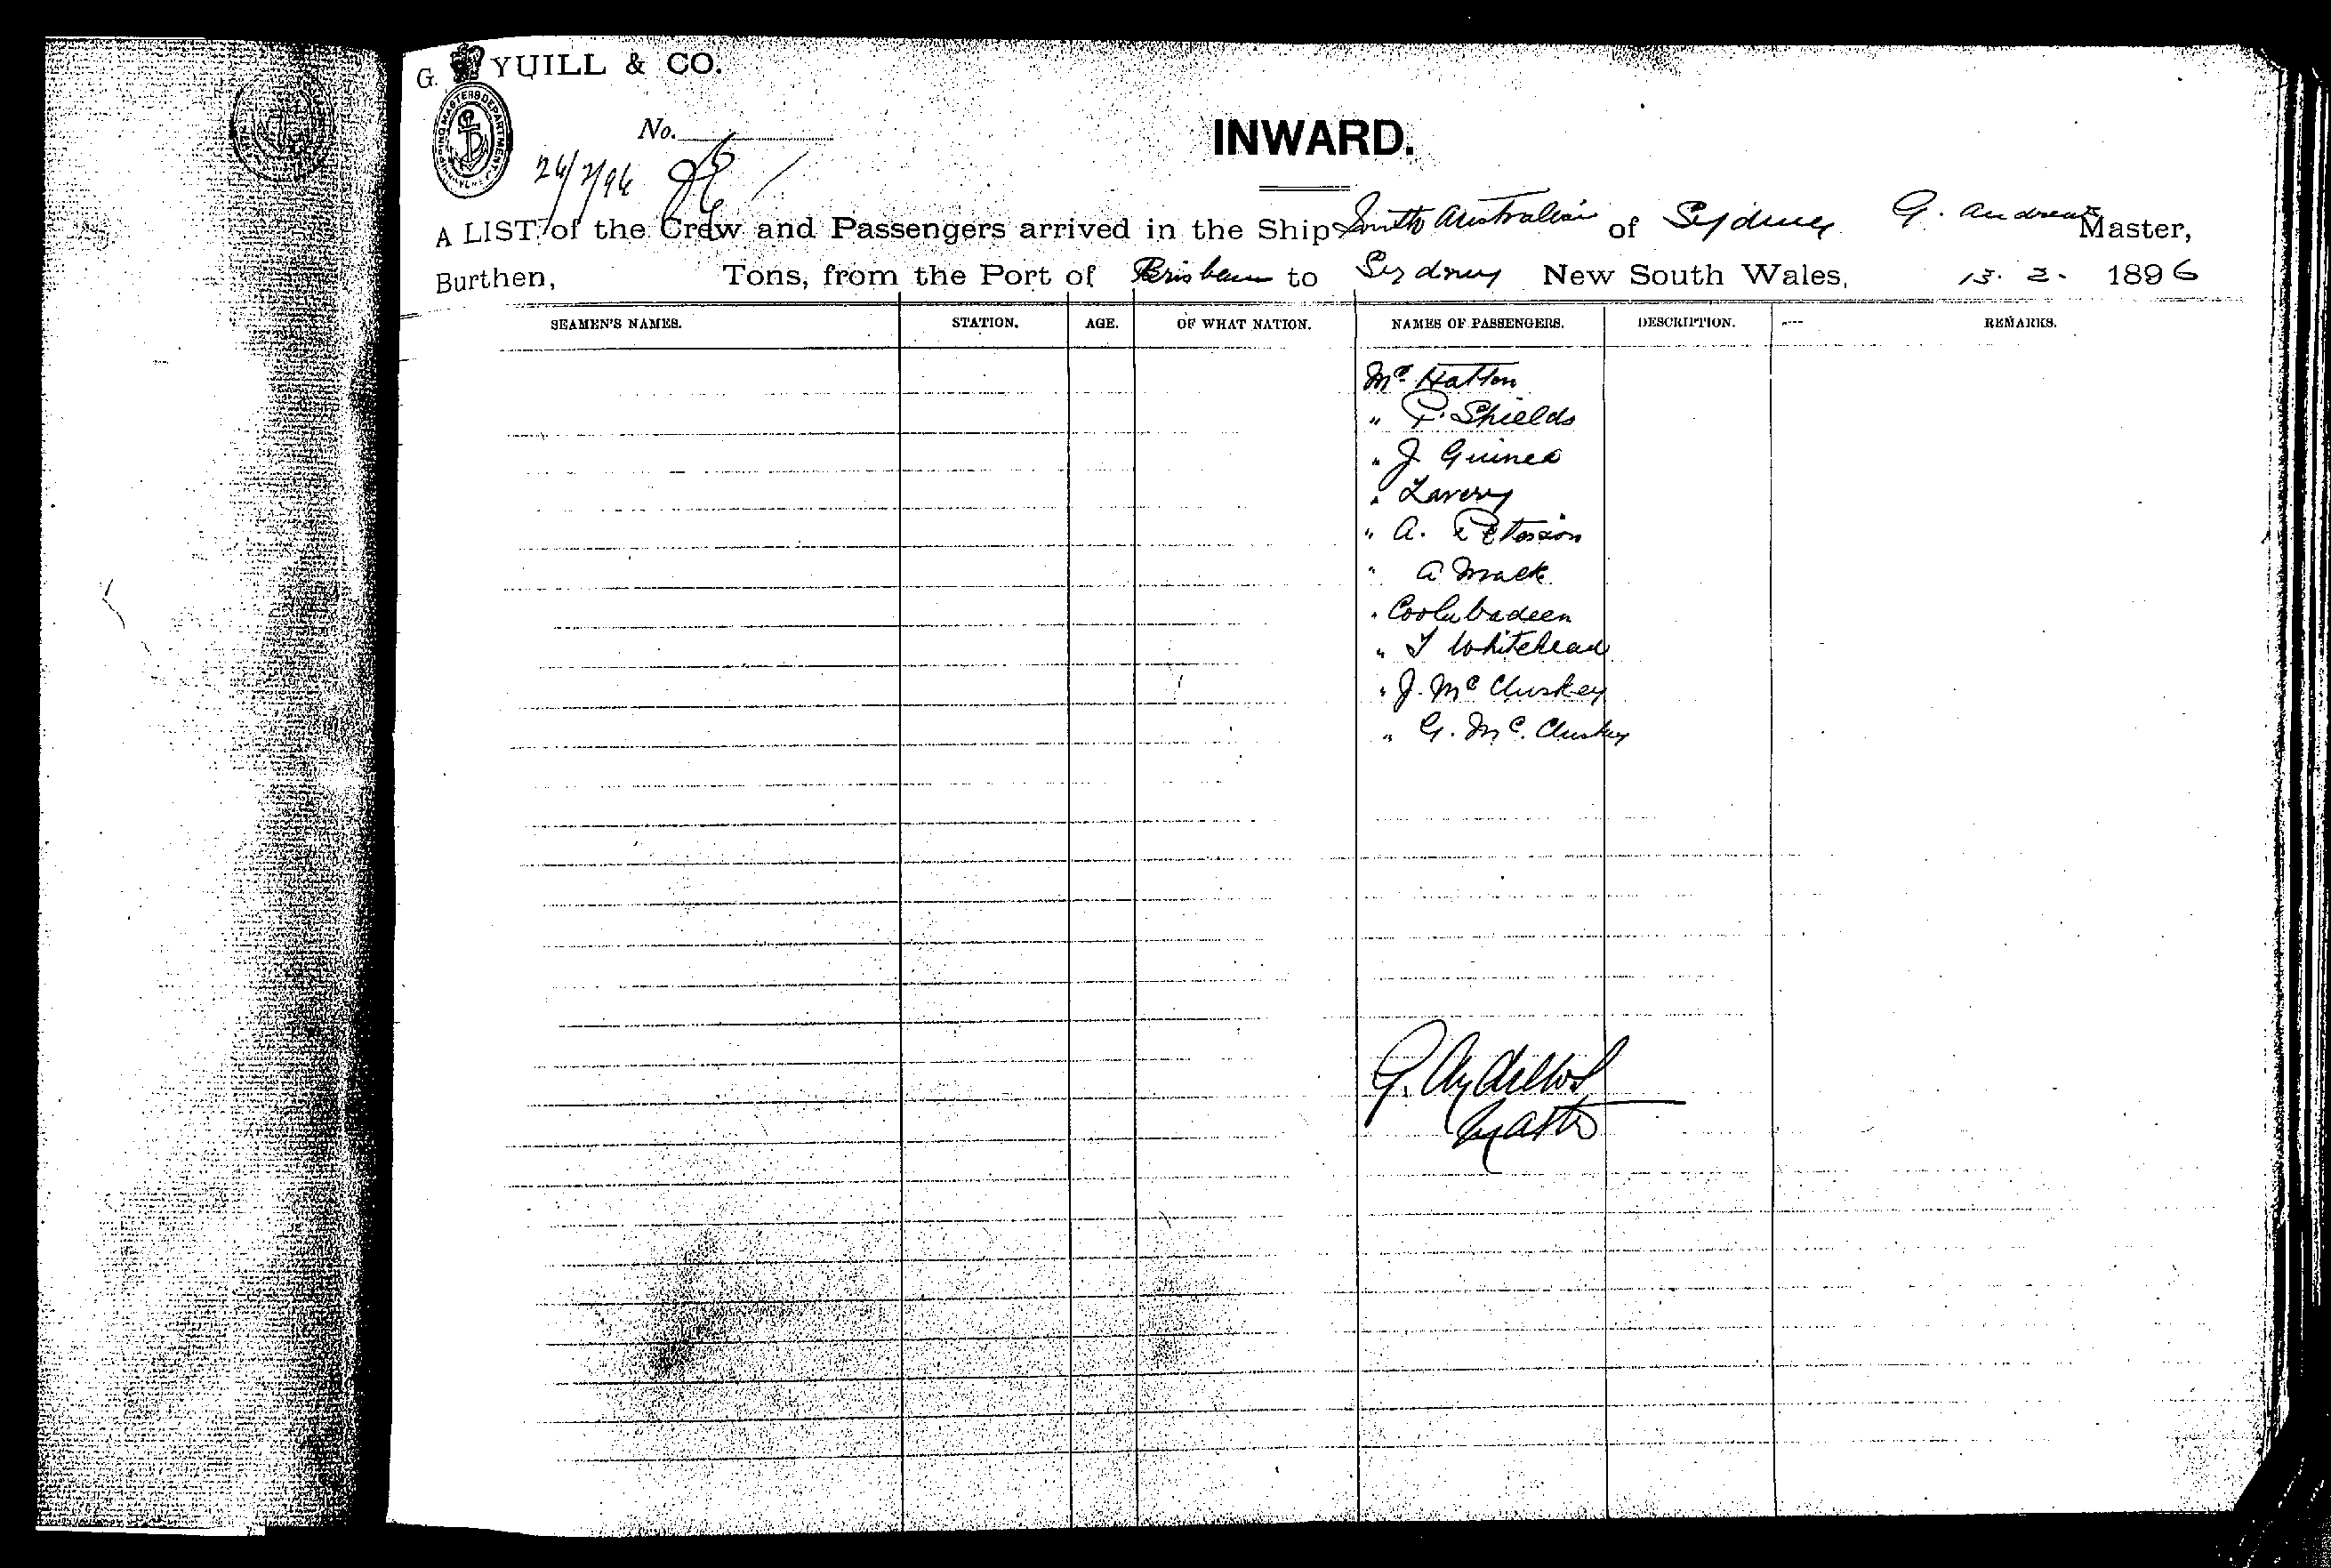 G. YUILL & CO.
SHIPPING MASTERS DEPARTMENT
No.
INWARD.
26/2/96
A LIST of the Crew and Passengers arrived in the Ship South Australian of Sydney G. Andrews Master,
Burthen, Tons, from the Port of Brisbane to Sydney New South Wales, 13. 2. 1896
SEAMEN'S NAMES. STATION. AGE. OF WHAT NATION. NAMES OF PASSENGERS. DESCRIPTION. REMARKS.
Mr Hatton
" P. Shields
" J Guinea
" Lavery
" A. Peterson
" A Mack
" Coolubadeen
" T Whitehead
" J. McCluskey
" G. Mc.Cluskey
G. Andrews
Master